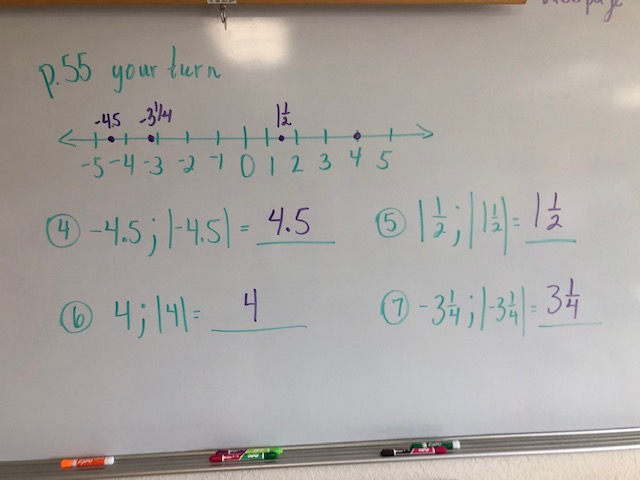 p.55 your turn
-4.5 -3 1/4 1 1/2
-5 -4 -3 -2 -1 0 1 2 3 4 5
④ -4.5; |-4.5| = 4.5
⑤ 1 1/2; |1 1/2| = 1 1/2
⑥ 4; |4| = 4
⑦ -3 1/4; |-3 1/4| = 3 1/4